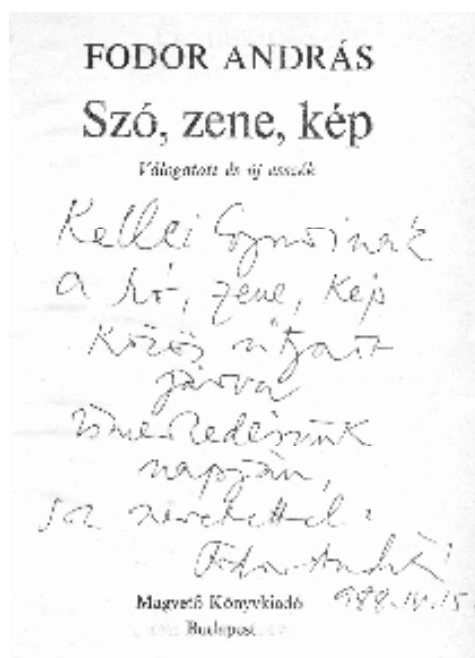 FODOR ANDRÁS
Szó, zene, kép
Válogatott és új esszék
Kellei
a szó, zene, kép
közös útjait
járva
ismerkedésünk
napján,
szeretettel:
Fodor András
988. IV. 15.
Magvető Könyvkiadó
Budapest